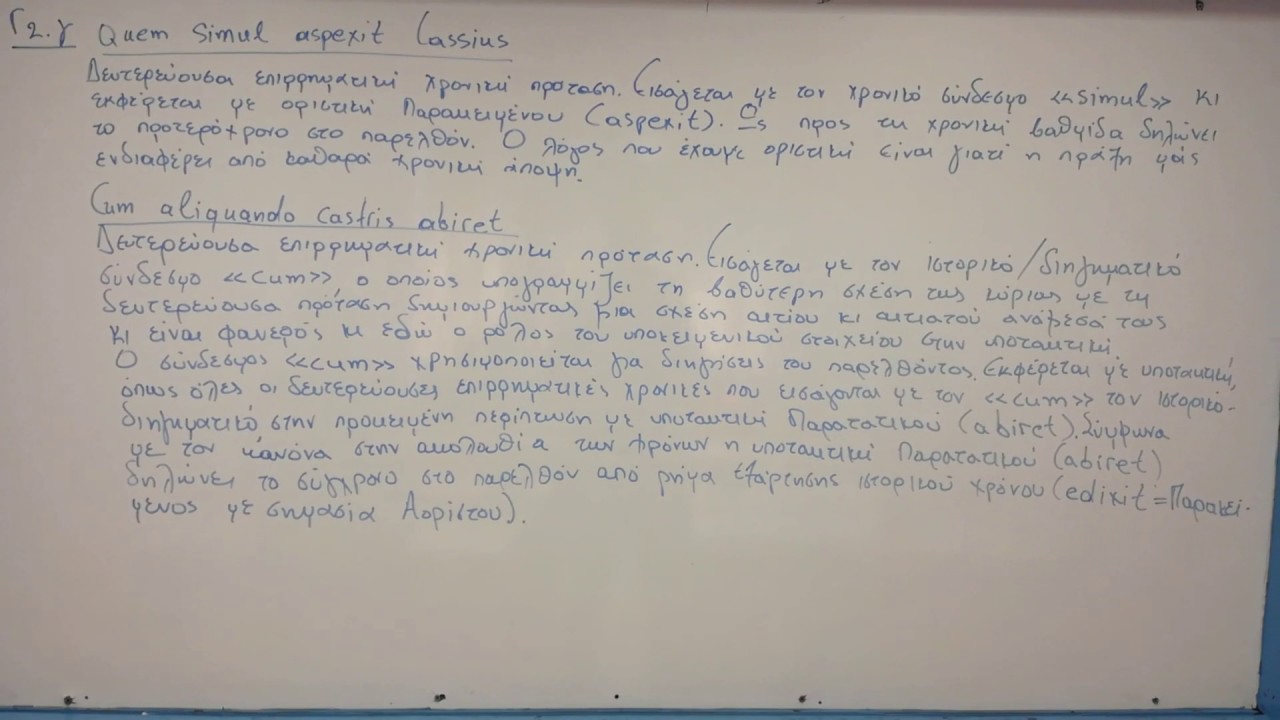 Γ2.γ Quem simul aspexit Cassius
Δευτερεύουσα επιρρηματική χρονική πρόταση. Εισάγεται με τον χρονικό σύνδεσμο «simul» κι
εκφέρεται με οριστική Παρακειμένου (aspexit). Ως προς τη χρονική βαθμίδα δηλώνει
το προτερόχρονο στο παρελθόν. Ο λόγος που έχουμε οριστική είναι γιατί η πράξη μάς
ενδιαφέρει από καθαρά χρονική άποψη.
Cum aliquando castris abiret
Δευτερεύουσα επιρρηματική χρονική πρόταση. Εισάγεται με τον ιστορικό/διηγηματικό
σύνδεσμο «cum», ο οποίος υπογραμμίζει τη βαθύτερη σχέση της κύριας με τη
δευτερεύουσα πρόταση δημιουργώντας μια σχέση αιτίου κι αιτιατού ανάμεσά τους
κι είναι φανερός κι εδώ ο ρόλος του υποκειμενικού στοιχείου στην υποτακτική.
Ο σύνδεσμος «cum» χρησιμοποιείται για διηγήσεις του παρελθόντος. Εκφέρεται με υποτακτική,
όπως όλες οι δευτερεύουσες επιρρηματικές χρονικές που εισάγονται με τον «cum» τον ιστορικό-
διηγηματικό στην προκειμένη περίπτωση με υποτακτική Παρατατικού (abiret). Σύμφωνα
με τον κανόνα στην ακολουθία των χρόνων η υποτακτική Παρατατικού (abiret)
δηλώνει το σύγχρονο στο παρελθόν από ρήμα εξάρτησης ιστορικού χρόνου (edixit = Παρακεί-
μενος με σημασία Αορίστου).